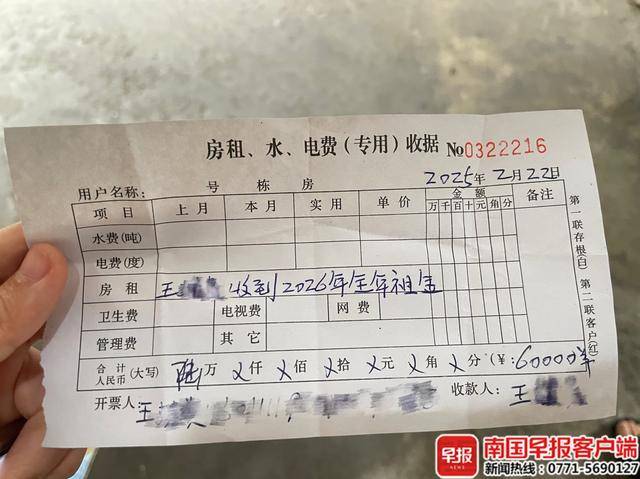 房租、水、电费(专用)收据 №0322216
用户名称: 号 栋 房 2025年2月22日
项目 上月 本月 实用 单价 金额 备注
万千百十元角分
水费(吨)
电费(度)
房租 王 收到2026年全年祖金
卫生费 电视费 网费
管理费 其它
合计人民币(大写) 陆万 X仟 X佰 X拾 X元 X角 X分(¥:60000羊
开票人: 王 收款人: 王
第一联存根(白) 第二联客户(红)
早报 南国早报客户端
NEWS 新闻热线:0771-5690127